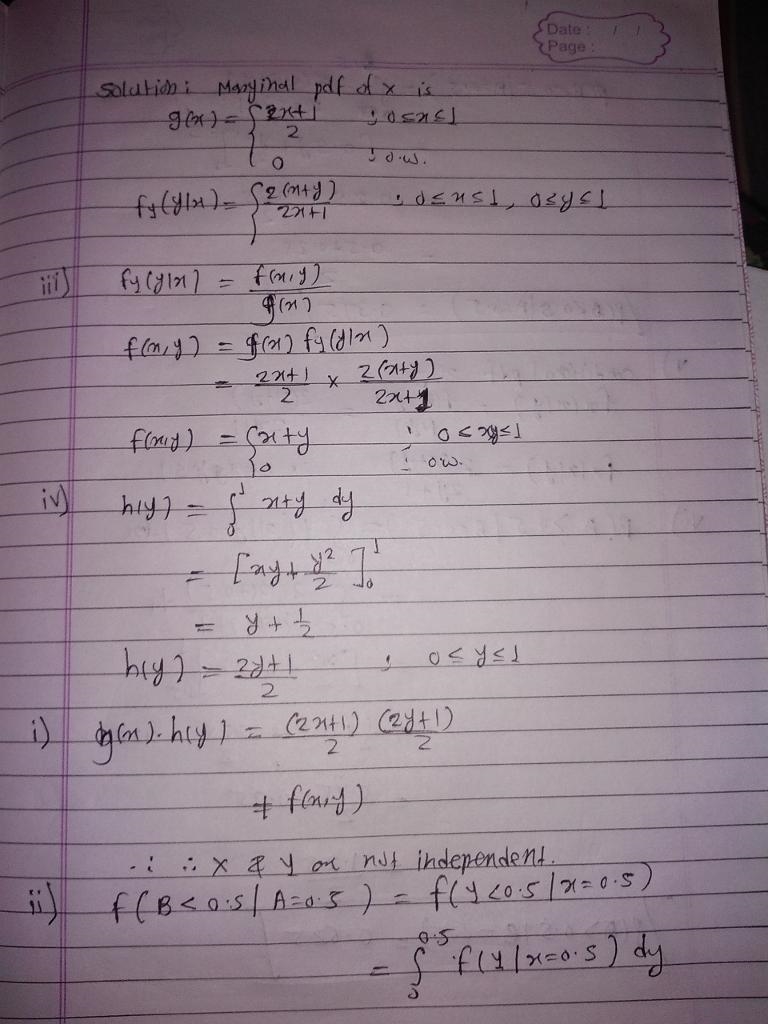 Date : / /
Page :
Solution : Marginal pdf of x is
g(x) = { (2x+1)/2 ; 0≤x≤1
0 ; o.w.
fy(y|x) = { 2(x+y)/(2x+1) ; 0≤x≤1, 0≤y≤1
iii) fy(y|x) = f(x,y)/g(x)
f(x,y) = g(x) fy(y|x)
= (2x+1)/2 × 2(x+y)/(2x+1)
f(x,y) = { x+y ; 0≤xy≤1
0 ; o.w.
iv) h(y) = ∫₀¹ x+y dy
= [xy + y²/2]₀¹
= y + 1/2
h(y) = (2y+1)/2 ; 0≤y≤1
i) g(x).h(y) = (2x+1)/2 (2y+1)/2
≠ f(x,y)
∴ ∴ X & Y are not independent.
ii) f(B<0.5|A=0.5) = f(Y<0.5|x=0.5)
= ∫₀^0.5 f(y|x=0.5) dy